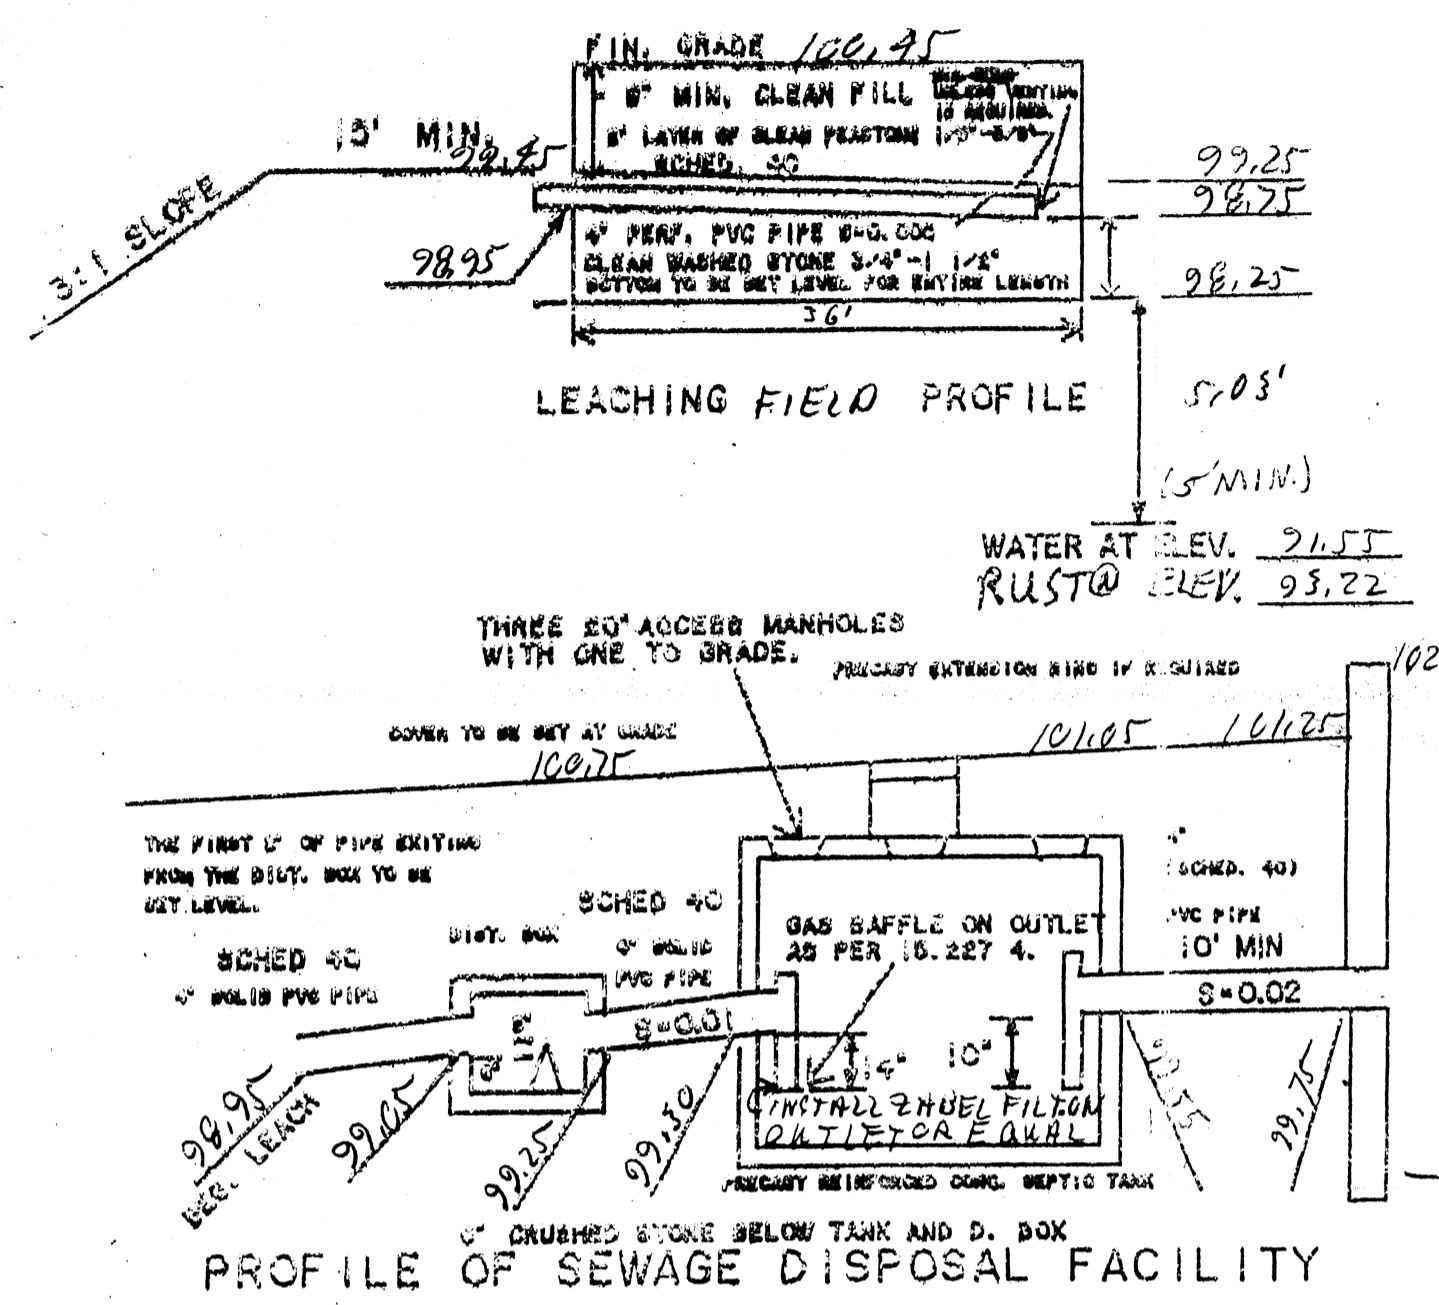 FIN. GRADE 100.45
MIN. CLEAN FILL
UNLESS VENTING
IS REQUIRED.
LAYER OF CLEAN PEASTONE
SCHED. 40
15' MIN.
99.45
3:1 SLOPE
99.25
98.75
98.95
4" PERF. PVC PIPE
CLEAN WASHED STONE 3/4"-1 1/2"
BOTTOM TO BE SET LEVEL FOR ENTIRE LENGTH
98.25
36'
LEACHING FIELD PROFILE
5.03'
(5' MIN.)
WATER AT ELEV. 91.55
RUST@ ELEV. 93.22
THREE 20" ACCESS MANHOLES
WITH ONE TO GRADE.
PRECAST EXTENSION RING IF REQUIRED
102
COVER TO BE SET AT GRADE
100.75
101.05
101.25
THE FIRST 2' OF PIPE EXITING
FROM THE DIST. BOX TO BE
SET LEVEL.
4"
(SCHED. 40)
PVC PIPE
10' MIN
S=0.02
SCHED 40
4" SOLID
PVC PIPE
S=0.01
GAS BAFFLE ON OUTLET
AS PER 15.227 4.
DIST. BOX
SCHED 40
4" SOLID PVC PIPE
14"
10"
INSTALL ZABEL FILT. ON
OUTLET OR EQUAL
98.95
BEG. LEACH
99.05
99.25
99.30
99.55
99.75
PRECAST REINFORCED CONC. SEPTIC TANK
6" CRUSHED STONE BELOW TANK AND D. BOX
PROFILE OF SEWAGE DISPOSAL FACILITY